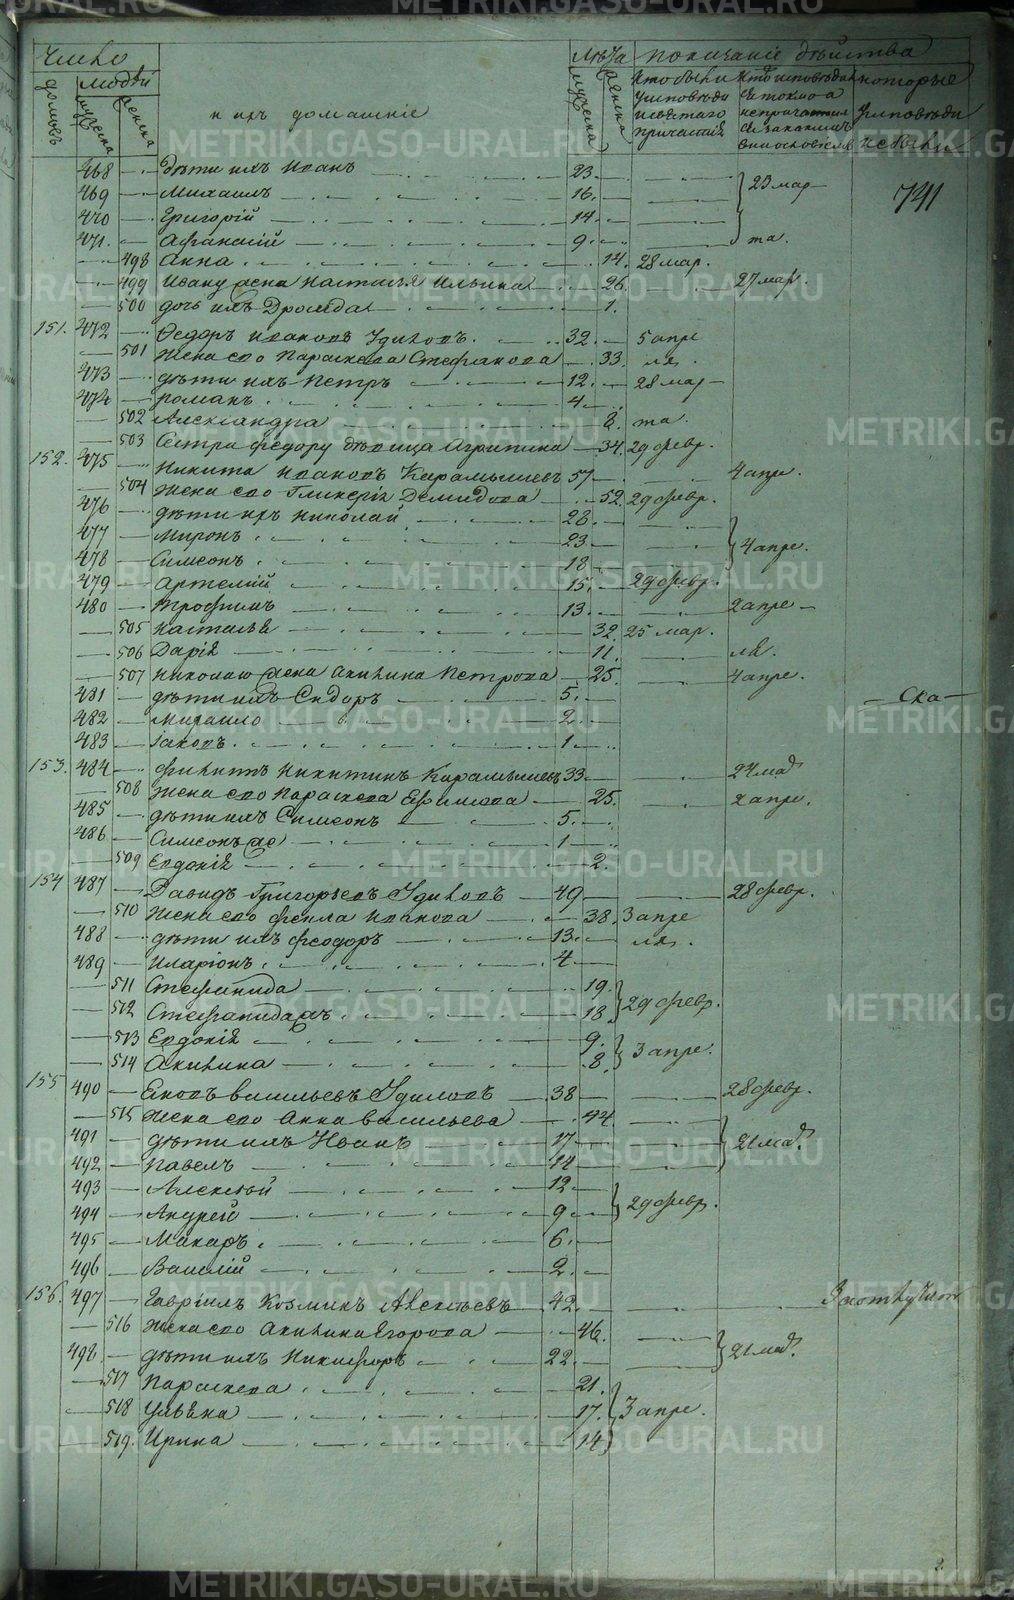 METRIKI.GASO-URAL.RU
Число
домовъ
людей
мужеска
женска
и ихъ домашніе
Лѣта
мужеска
женска
показаніе дѣйства
Кто были у исповѣди и святаго причастія
которые у исповѣди не были
741
468 дѣти ихъ Иванъ 23
469 Михаилъ 16 23 мар
470 Григорій 14
471 Афанасій 9 та
498 Анна 14 28 мар.
499 Ивану жена Наталья Ильина 26 27 мар.
500 дочь ихъ 1
151. 472 Ѳедоръ Ивановъ 32 5 апре
501 Жена его Параскева Стефанова 33 ля
473 дѣти ихъ Петръ 12 28 мар
474 Романъ 4
502 Александра 8 та
503 Сестра Федору дѣвица Агрипина 34 29 февр.
152. 475 Никита Ивановъ Карамышевъ 57 4 апре.
504 Жена его Гликерія Демидова 52 29 февр.
476 дѣти ихъ Николай 28
477 Миронъ 23 4 апре.
478 Симеонъ 18
479 Артемій 15 29 февр.
480 Трофимъ 13 2 апре
505 Наталья 32 25 мар.
506 Дарія 11 ля.
507 Николаю жена Акилина Петрова 25 4 апре.
481 дѣти ихъ Сидоръ 5
Ска
482 Михаило 2
483 Іаковъ 1
153. 484 Филиппъ Никитинъ Карамышевъ 33 24 мар
508 Жена его Параскева Ефимова 25 2 апре.
485 дѣти ихъ Симеонъ 5
486 Симеонъ же 1
509 Евдокія 2
154 487 Давидъ Григорьевъ 49 28 февр.
510 Жена его Фекла Иванова 38 3 апре
488 дѣти ихъ Феодоръ 13 ля.
489 Иларіонъ 4
511 Стефанида 19
512 Стефанида жъ 18 29 февр.
513 Евдокія 9
514 Акилина 8 3 апре.
155 490 Васильевъ 38 28 февр.
515 Жена его Анна Васильева 44
491 дѣти ихъ Иванъ 17 21 мар.
492 Павелъ 14
493 Алексѣй 12
494 Андрей 9 29 февр.
495 Макаръ 6
496 Василій 2
156. 497 Гавріилъ Козминъ 42
516 Жена его Акилина Егорова 46
498 дѣти ихъ Никифоръ 22 21 мар.
517 Параскева 21
518 Ульяна 17 3 апре.
519 Ирина 14